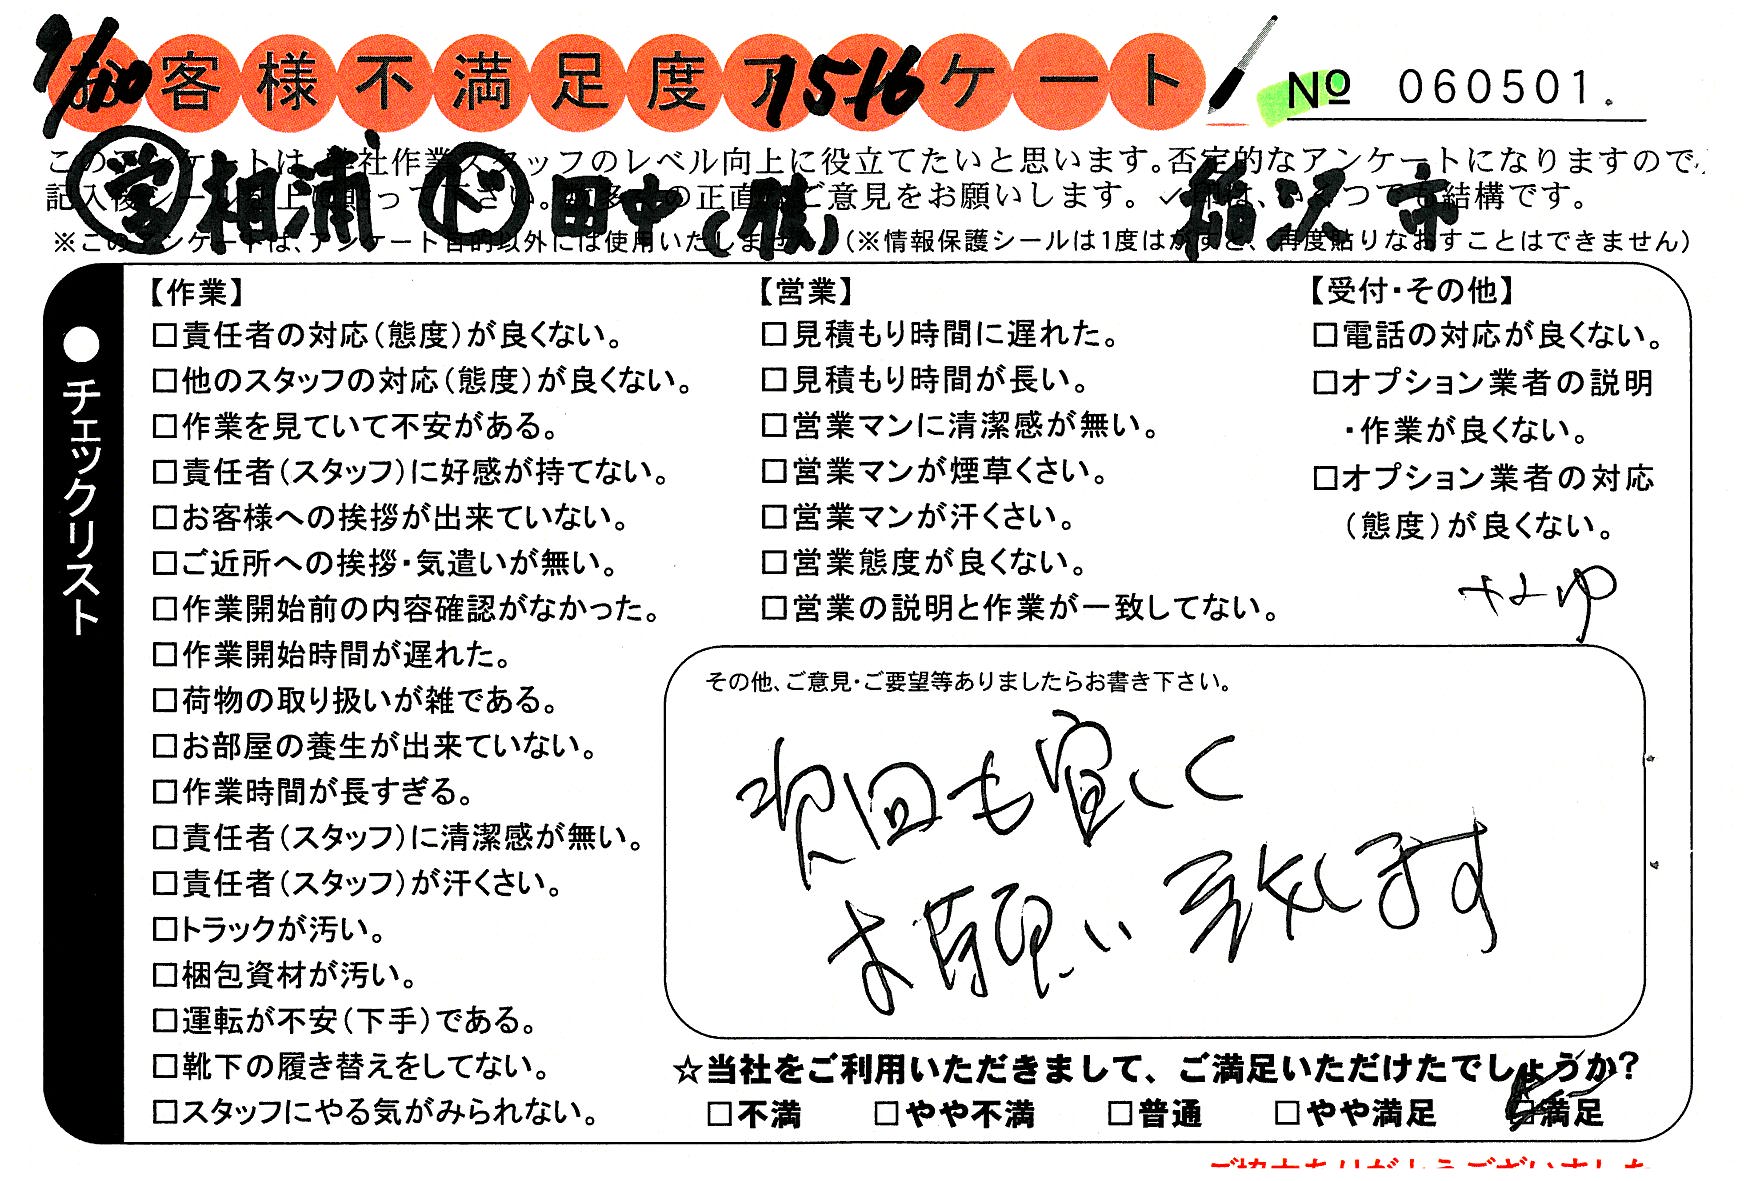 9/10 1516
お客様不満足度アンケート
No 060501.
このアンケートは、当社作業スタッフのレベル向上に役立てたいと思います。否定的なアンケートになりますので、
記入後シールを上に貼って下さい。数多くの正直なご意見をお願いします。✓印は、いくつでも結構です。
営 相浦 ド 田中(株) 稲沢市
※このアンケートは、アンケート目的以外には使用いたしません。(※情報保護シールは1度はがすと、再度貼りなおすことはできません)
●チェックリスト
【作業】
□責任者の対応(態度)が良くない。
□他のスタッフの対応(態度)が良くない。
□作業を見ていて不安がある。
□責任者(スタッフ)に好感が持てない。
□お客様への挨拶が出来ていない。
□ご近所への挨拶・気遣いが無い。
□作業開始前の内容確認がなかった。
□作業開始時間が遅れた。
□荷物の取り扱いが雑である。
□お部屋の養生が出来ていない。
□作業時間が長すぎる。
□責任者(スタッフ)に清潔感が無い。
□責任者(スタッフ)が汗くさい。
□トラックが汚い。
□梱包資材が汚い。
□運転が不安(下手)である。
□靴下の履き替えをしてない。
□スタッフにやる気がみられない。
【営業】
□見積もり時間に遅れた。
□見積もり時間が長い。
□営業マンに清潔感が無い。
□営業マンが煙草くさい。
□営業マンが汗くさい。
□営業態度が良くない。
□営業の説明と作業が一致してない。
【受付・その他】
□電話の対応が良くない。
□オプション業者の説明
・作業が良くない。
□オプション業者の対応
(態度)が良くない。
その他、ご意見・ご要望等ありましたらお書き下さい。
次回も宜しく
お願い致します
☆当社をご利用いただきまして、ご満足いただけたでしょうか?
□不満 □やや不満 □普通 □やや満足 □満足
ご協力ありがとうございました